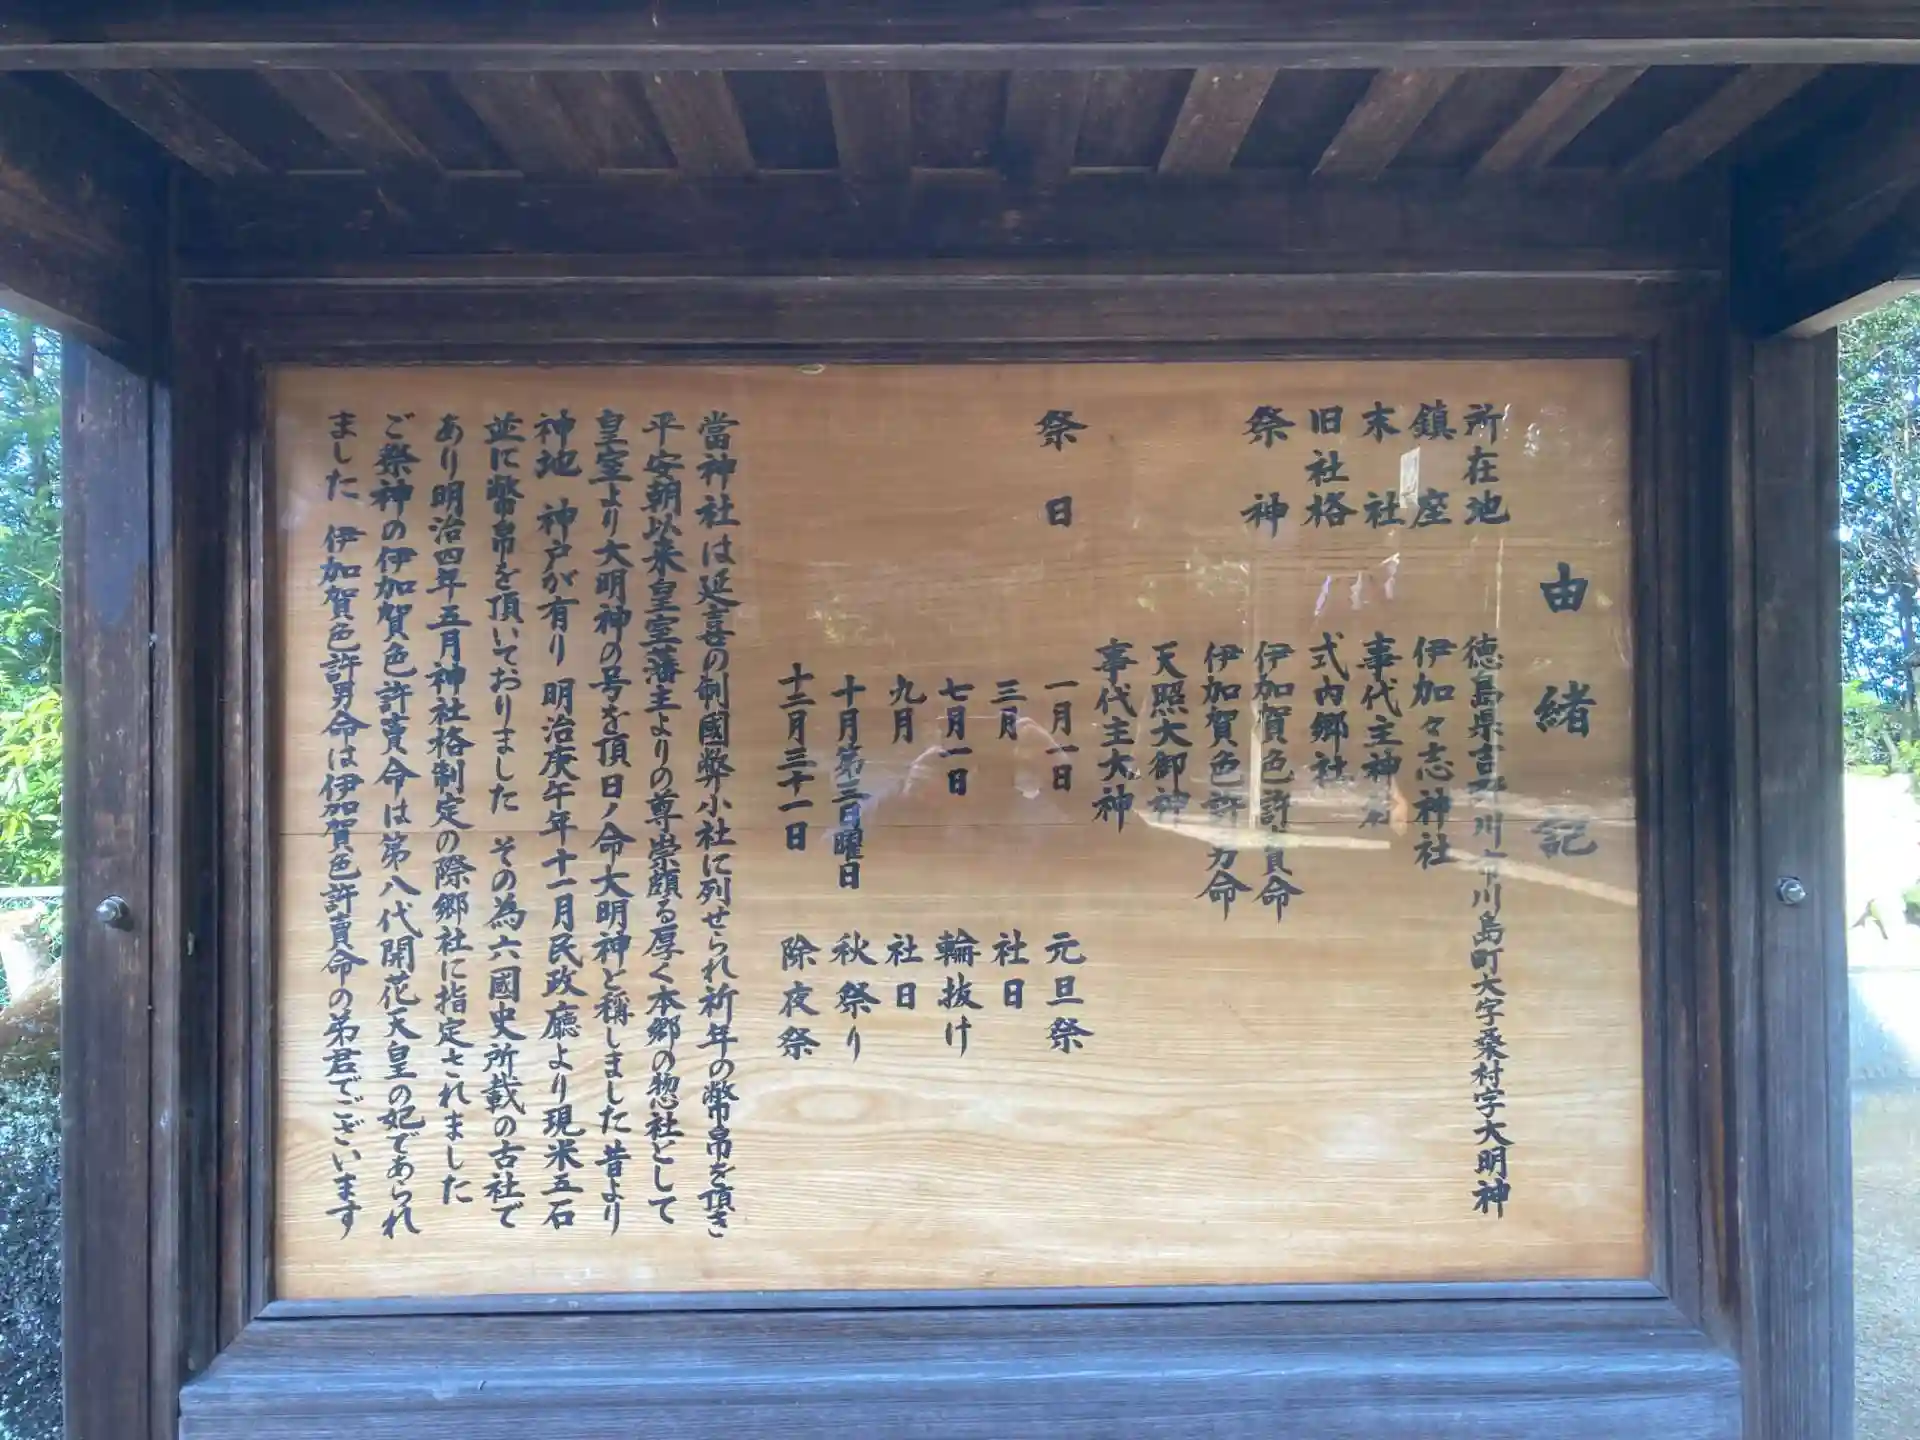 由緒記
所在池 徳島県吉野川市川島町大字桑村字大明神
鎮座 伊加々志神社
末社 事代主神社
旧社格 式内郷社
祭神 伊加賀色許賣命
伊加賀色許男命
天照大御神
事代主大神
祭日 一月一日 元旦祭
三月 社日
七月一日 輪抜け
九月 社日
十月第三日曜日 秋祭り
十二月三十一日 除夜祭
當神社は延喜の制國弊小社に列せられ祈年の幣帛を頂き
平安朝以来皇室藩主よりの尊崇頗る厚く本郷の惣社として
皇室より大明神の号を頂日ノ命大明神と稱しました昔より
神地 神戸が有り 明治庚午年十一月民政廳より現米五石
並に幣帛を頂いておりました その為六國史所載の古社で
あり明治四年五月神社格制定の際郷社に指定されました
ご祭神の伊加賀色許賣命は第八代開花天皇の妃であられ
ました 伊加賀色許男命は伊加賀色許賣命の弟君でございます